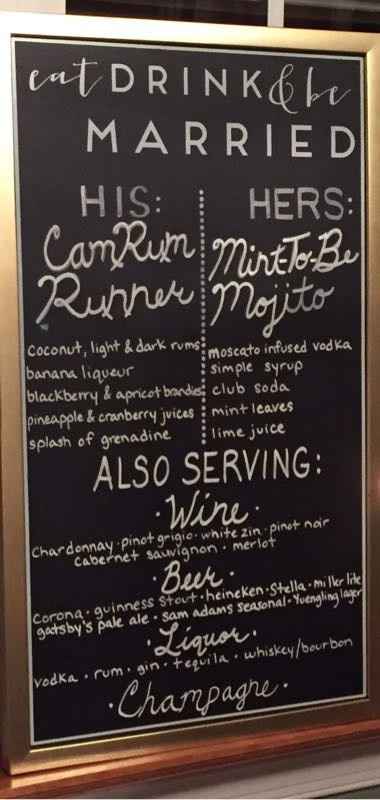 eat DRINK & be
MARRIED
HIS:
CamRum
Runner
coconut, light & dark rums
banana liqueur
blackberry & apricot brandies
pineapple & cranberry juices
splash of grenadine
HERS:
Mint-To-Be
Mojito
moscato infused vodka
simple syrup
club soda
mint leaves
lime juice
ALSO SERVING:
· Wine ·
Chardonnay · pinot grigio · white zin · pinot noir
cabernet sauvignon · merlot
· Beer ·
Corona · guinness stout · heineken · Stella · miller lite
gatsby's pale ale · sam adams seasonal · Yuengling lager
· Liquor ·
vodka · rum · gin · tequila · whiskey/bourbon
· Champagne ·